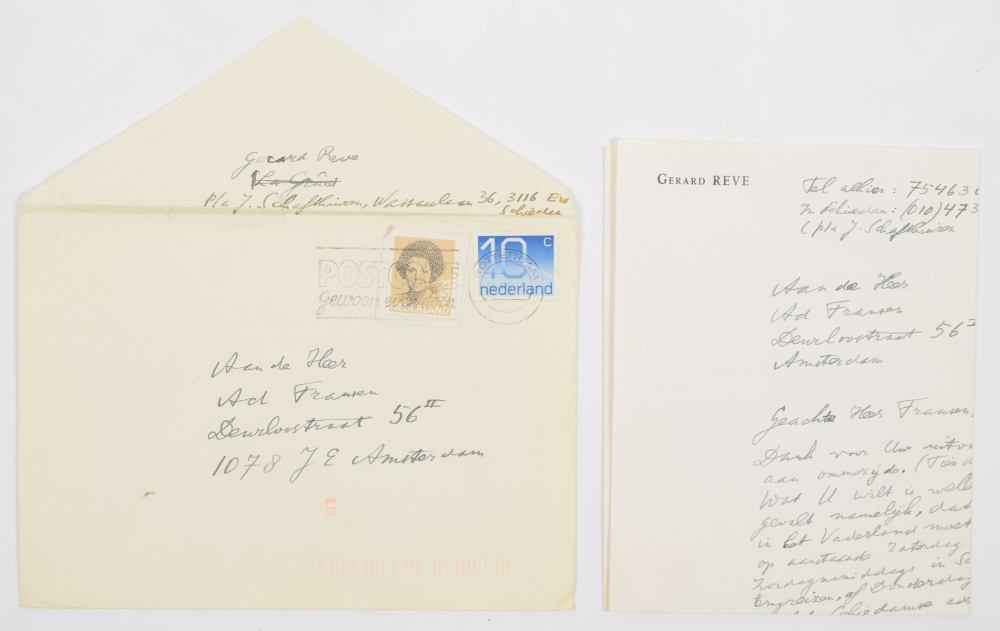 Gerard Reve
La Grâce
p/a J. Schafthuizen, Wassenaarln 36, 3116 EW
Schiedam
POST
Gewoon
ROTTERDAM
NEDERLAND
10 c
nederland
Aan de Heer
Ad Fransen
Deurloostraat 56 II
1078 JE Amsterdam
GERARD REVE
Tel. alhier: 75463
In Schiedam: (010) 473
( p/a J. Schafthuizen
Aan de Heer
Ad Fransen
Deurloostraat 56 I
Amsterdam
Geachte Heer Fransen,
Dank voor Uw
aan ommezijde. (Tien
Wat U wilt is well
gevalt namelijk, dat
in het Vaderland moet
op aanstaande Zaterdag
Zondagmiddags in Sc
terugreizen, of Donderdag
Schiedamse